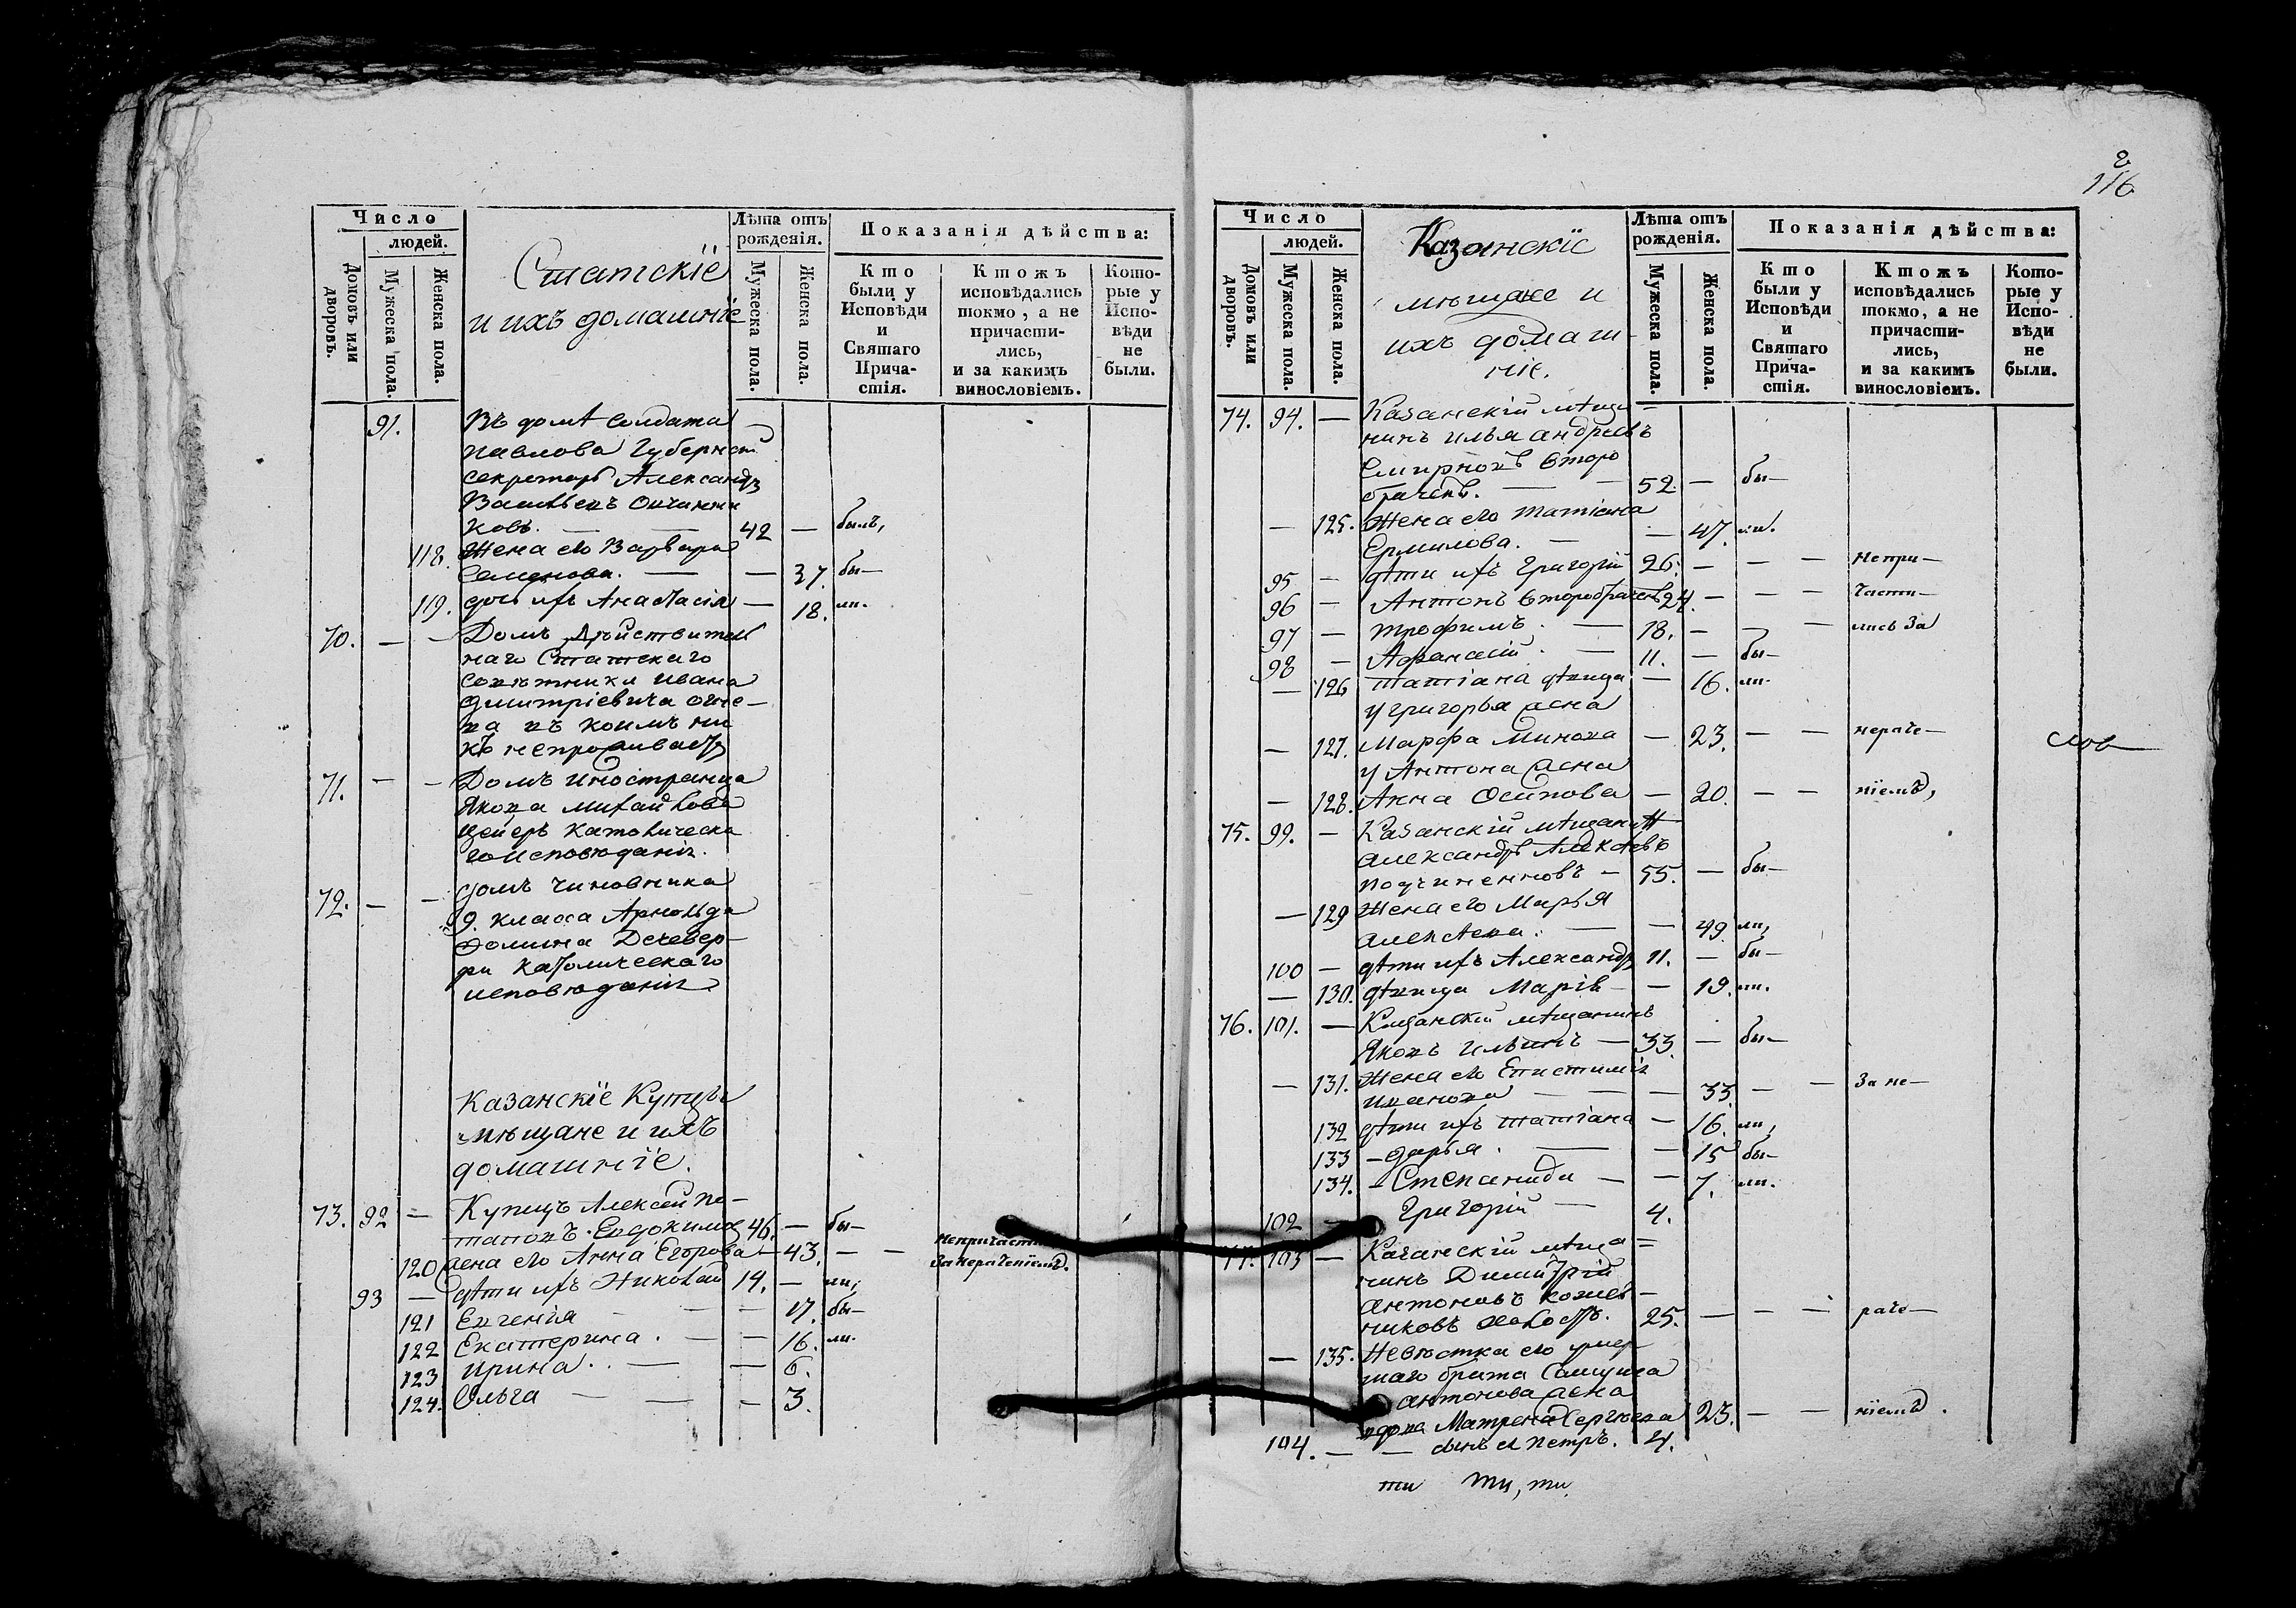 Число
людей.
Домовъ или дворовъ.
Мужеска пола.
Женска пола.
Статскіе
и ихъ домашніе
Лѣта отъ
рожденія.
Мужеска пола.
Женска пола.
Показанія дѣйства:
Кто
были у
Исповѣди
и
Святаго
Прича-
стія.
Ктожъ
исповѣдались
токмо, а не
причасти-
лись,
и за какимъ
винословіемъ.
Кото-
рые у
Испо-
вѣди
не
были.
91. Въ домѣ Солдата —
Павлова Губернск
Секретарь Александръ
Васильевъ Овчинни
ковъ. — — 42 — былъ,
118. Жена его Варвара
Семенова. — — 37. бы—
119. дочь ихъ Анастасія — 18. ли.
70. — — Домъ Дѣйствитель
наго Статскаго
Совѣтника Ивана
Дмитріевича
ва въ коемъ ни
кто непроживаетъ
71. — — Домъ Иностранца
Якова Михайлова
Цейеръ Католическа
го исповѣданія.
72. — — Домъ чиновника
9. класса Арнольда
католическаго
исповѣданія
Казанскіе Купцы
мѣщане и ихъ
домашніе.
73. 92 — Купецъ Алексей По-
таповъ Евдокимов 46. — бы—
120 жена его Анна Егорова — 43. — — непричаст
за нераченіемъ.
93 — дѣти ихъ Николай 14. — ли,
121 Евгенія — — 17. бы—
122 Екатерина. — — 16. ли.
123 Ирина. — — 6.
124. Ольга — — — 3.
2
116
Число
людей.
Домовъ или дворовъ.
Мужеска пола.
Женска пола.
Казанскіе
мѣщане и
ихъ домаш
ніе.
Лѣта отъ
рожденія.
Мужеска пола.
Женска пола.
Показанія дѣйства:
Кто
были у
Исповѣди
и
Святаго
Прича-
стія.
Ктожъ
исповѣдались
токмо, а не
причасти-
лись,
и за какимъ
винословіемъ.
Кото-
рые у
Испо-
вѣди
не
были.
74. 94. — Казанскій мѣща —
нинъ Илья Андреевъ
Смирновъ второ
браченъ. — — 52. — бы—
— 125. Жена его Татіана
Ермилова. — — 47. ли.
95 — дѣти ихъ Григорій 26. — — — непри—
96 — Антонъ второбраченъ 24. — — — части—
97 — Трофимъ. — 18. — — — лись за
98 — Афанасій. — 11. — бы—
— 126 Татіана дѣвица — 16. ли.
у Григорья жена
— 127. Марфа Минова — 23. — — нераче—
у Антона жена
— 128. Анна Осипова — 20. — — ніемъ,
75. 99. — Казанскій мѣщани
Александръ Алексѣевъ
Подчиненновъ — 55. — бы—
— 129 Жена его Марья
Алексѣева. — — 49 ли,
100 — дѣти ихъ Александръ 11. — бы—
— 130. дѣвица Марія — — 19. ли.
76. 101. — Казанскій мѣщанинъ
Яковъ Ильинъ — 33. — бы—
— 131. Жена его Епистимія
Иванова — — — 33. — — За не—
132 дѣти ихъ Татіана — 16. ли,
133 — Дарья. — — 15 бы—
134. — Степанида — — 7. ли.
102 — Григорій — 4.
77. 103 — Казанскій мѣща =
нинъ Димитрій
Антоновъ Кожев —
никовъ холостъ. 25. — — — раче—
— 135. Невѣстка его умер
шаго брата
Антонова жена
вдова Матрена Сергѣева 23. — — ніемъ.
104. — — сынъ ея Петръ. 4.